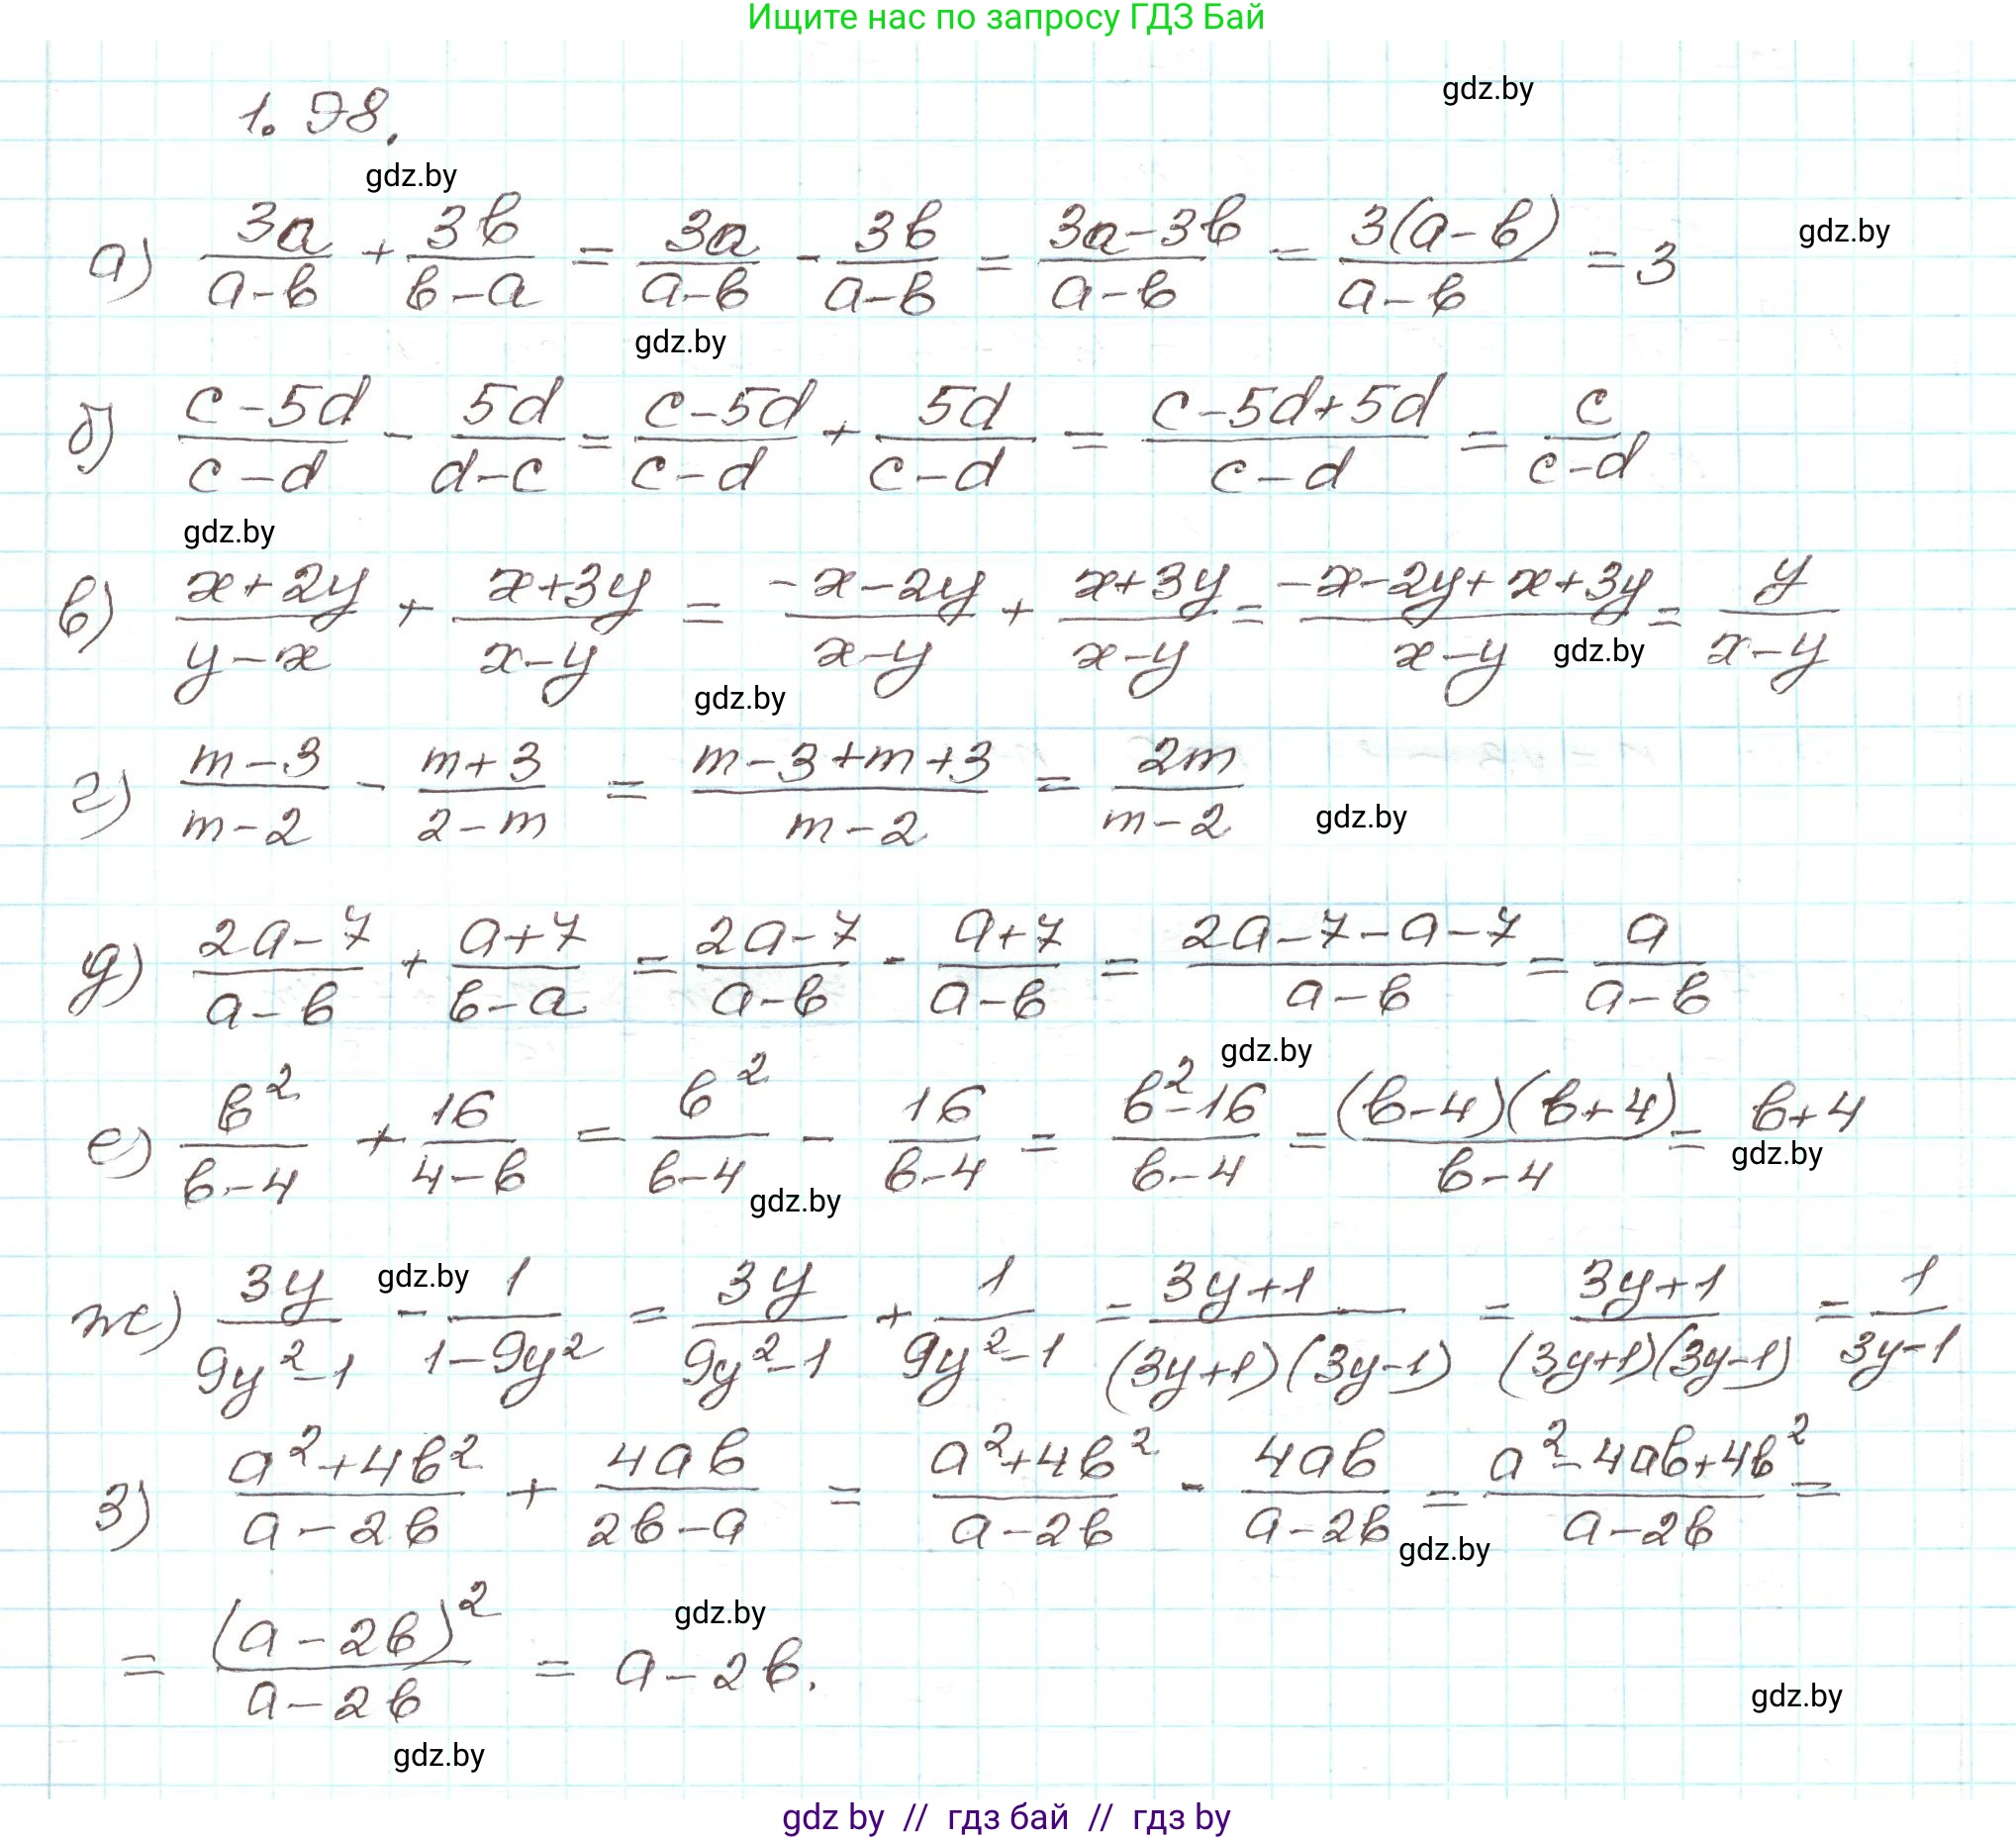 Ищите нас по запросу ГДЗ Бай
gdz.by
1.98.
gdz.by
а) 3a/(a-b) + 3b/(b-a) = 3a/(a-b) - 3b/(a-b) = (3a-3b)/(a-b) = 3(a-b)/(a-b) = 3 gdz.by
gdz.by
б) (c-5d)/(c-d) - 5d/(d-c) = (c-5d)/(c-d) + 5d/(c-d) = (c-5d+5d)/(c-d) = c/(c-d)
gdz.by
в) (x+2y)/(y-x) + (x+3y)/(x-y) = (-x-2y)/(x-y) + (x+3y)/(x-y) = (-x-2y+x+3y)/(x-y) = y/(x-y)
gdz.by
gdz.by
г) (m-3)/(m-2) - (m+3)/(2-m) = (m-3+m+3)/(m-2) = 2m/(m-2) gdz.by
д) (2a-7)/(a-b) + (a+7)/(b-a) = (2a-7)/(a-b) - (a+7)/(a-b) = (2a-7-a-7)/(a-b) = a/(a-b)
gdz.by
е) b²/(b-4) + 16/(4-b) = b²/(b-4) - 16/(b-4) = (b²-16)/(b-4) = (b-4)(b+4)/(b-4) = b+4
gdz.by
gdz.by
gdz.by
ж) 3y/(9y²-1) - 1/(1-9y²) = 3y/(9y²-1) + 1/(9y²-1) = (3y+1)/((3y+1)(3y-1)) = (3y+1)/((3y+1)(3y-1)) = 1/(3y-1)
з) (a²+4b²)/(a-2b) + 4ab/(2b-a) = (a²+4b²)/(a-2b) - 4ab/(a-2b) = (a²-4ab+4b²)/(a-2b) =
gdz.by
= (a-2b)²/(a-2b) = a-2b.
gdz.by
gdz.by
gdz.by
gdz by // гдз бай // гдз by